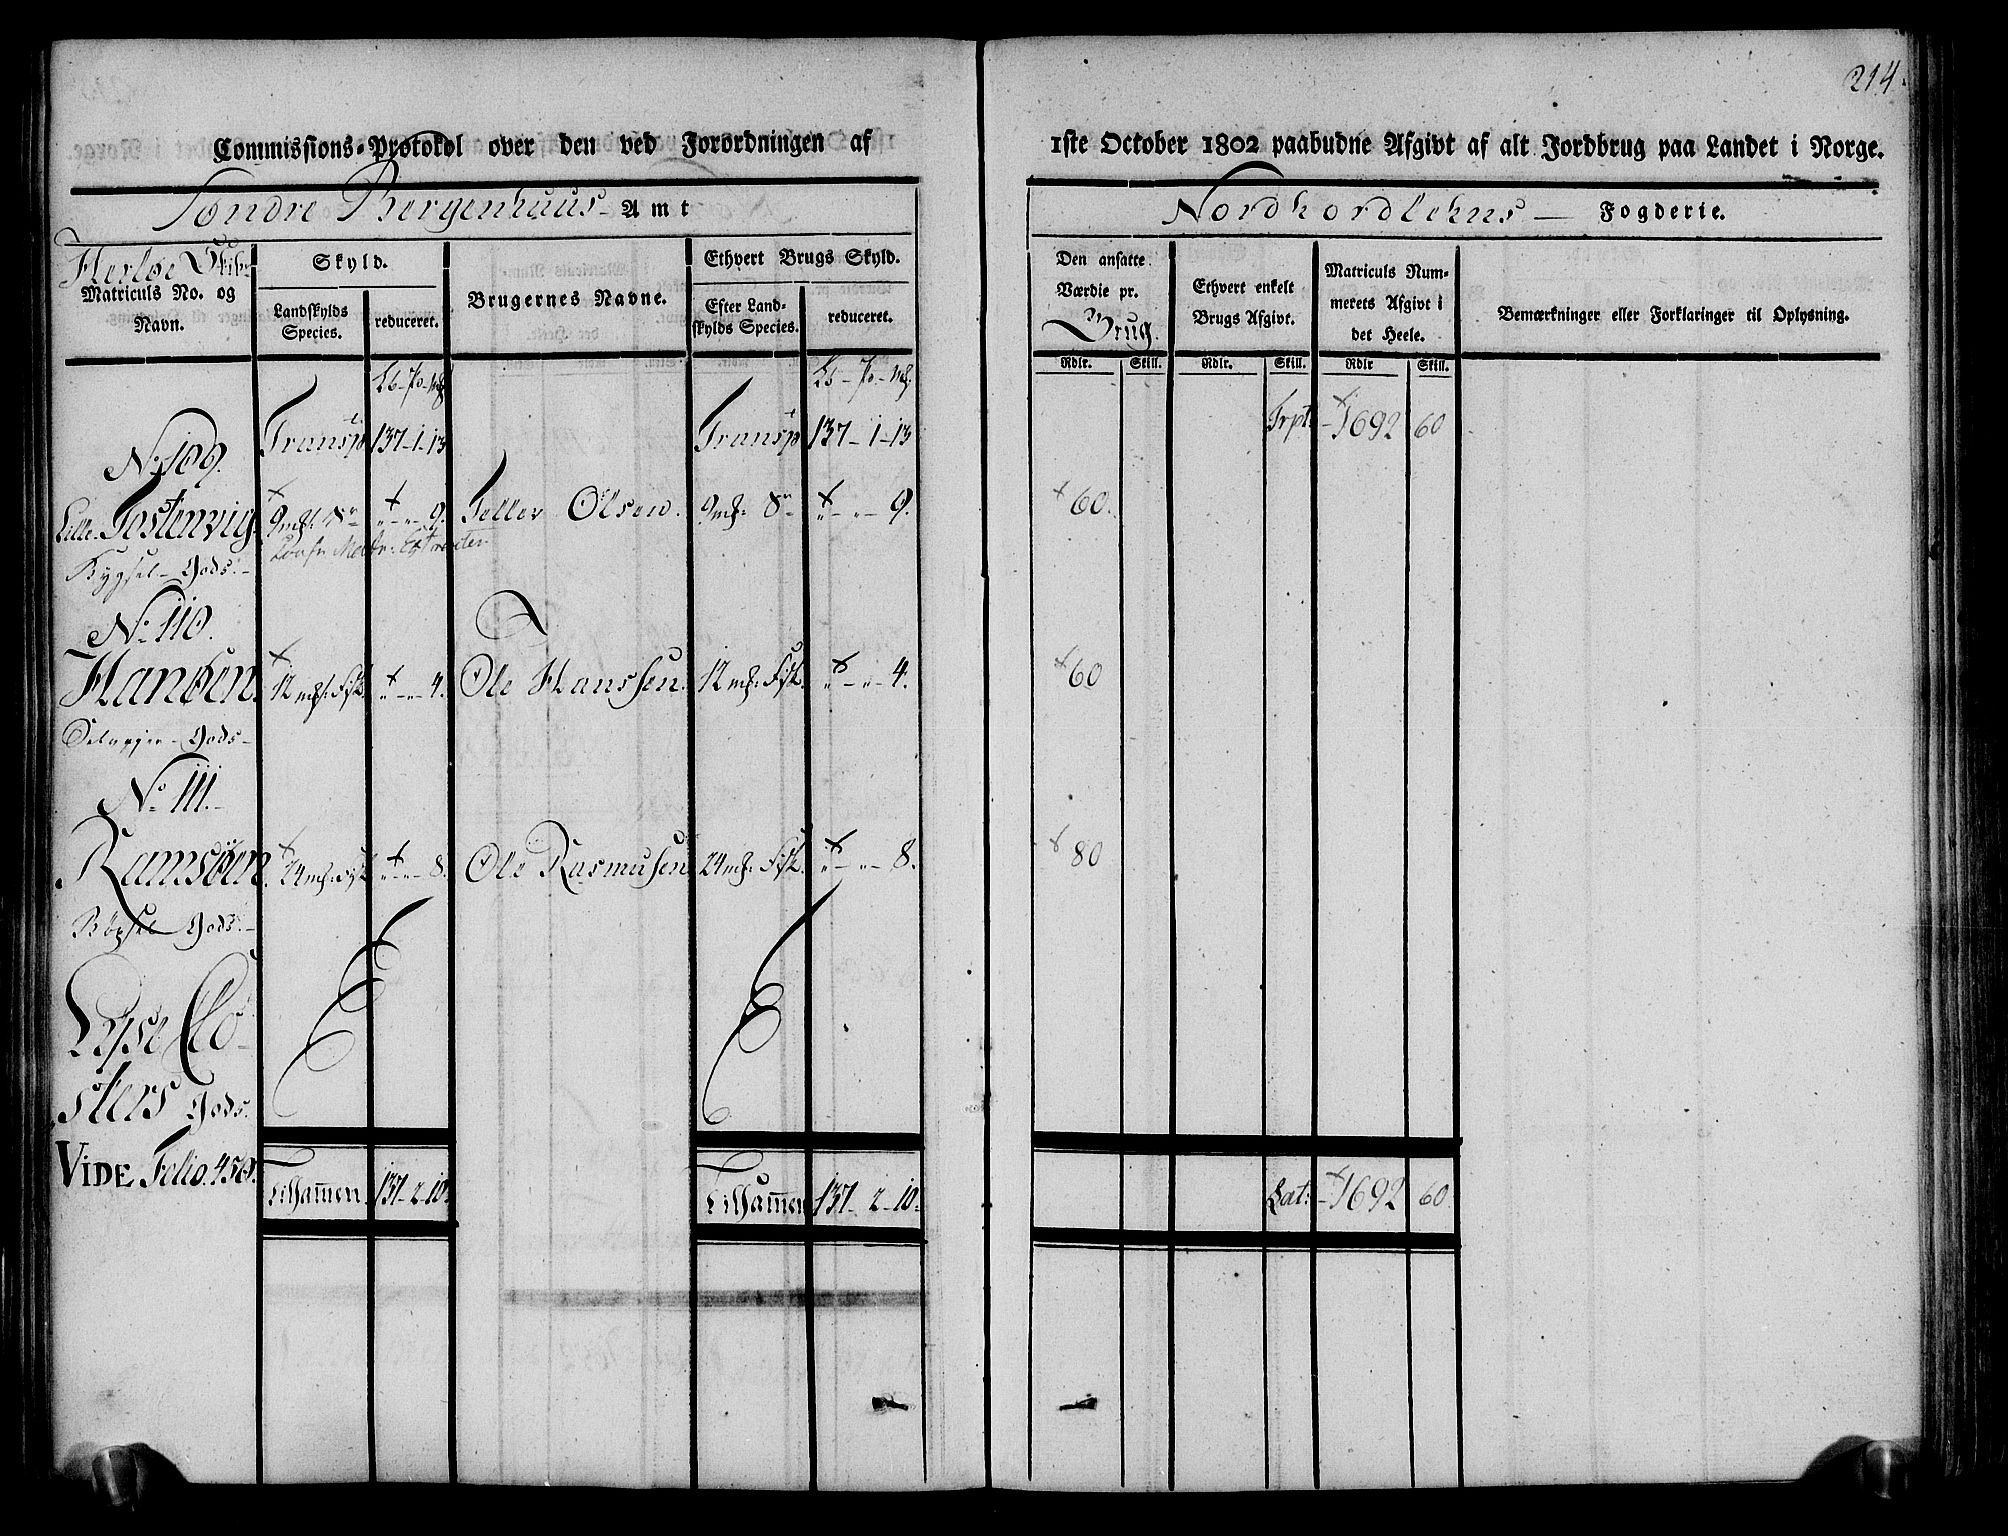 214.
Commissions-Protokol over den ved Forordningen af 1ste October 1802 paabudne Afgivt af alt Jordbrug paa Landet i Norge.
Søndre Bergenhuus Amt
Nordhordlehns Fogderie.
Herløe Skibr
Matriculs No. og Navn.
Skyld.
Landskylds Species.
reduceret.
Brugernes Navne.
Ethvert Brugs Skyld.
Efter Landskylds Species.
reduceret.
Den ansatte Værdie pr. Brug.
Ethvert enkelt Brugs Afgivt.
Matriculs Nummerets Afgivt i det Heele.
Bemærkninger eller Forklaringer til Oplysning.
Rdlr. Skill. Rdlr. Skill. Rdlr Skill.
Transpt 137-1-13 Transpt 137-1-13 Trpt: 1692 60
No 109.
Lille Tostenvig 9 mk: 8r „-„-9. Teller Olsen. 9 mk: 8r „-„-9. 60.
Bygsel-Gods.
No 110.
Hanøen. 12 mk: Fisk „-„-4. Ole Hanssen. 12 mk: Fisk. „-„-4. 60
Selvejer-Gods
No 111.
Ramsøen. 24 mk: Fisk „-„-8. Ole Rasmusen 24 mk: Fisk. „-„-8. 80
Bögsel Gods.
Lyse Clo-
sters Gods.
VIDE Folio. 450.
Tilsam̄en 137-2-10 Tilsam̄en 137-2-10 Lat: 1692 60